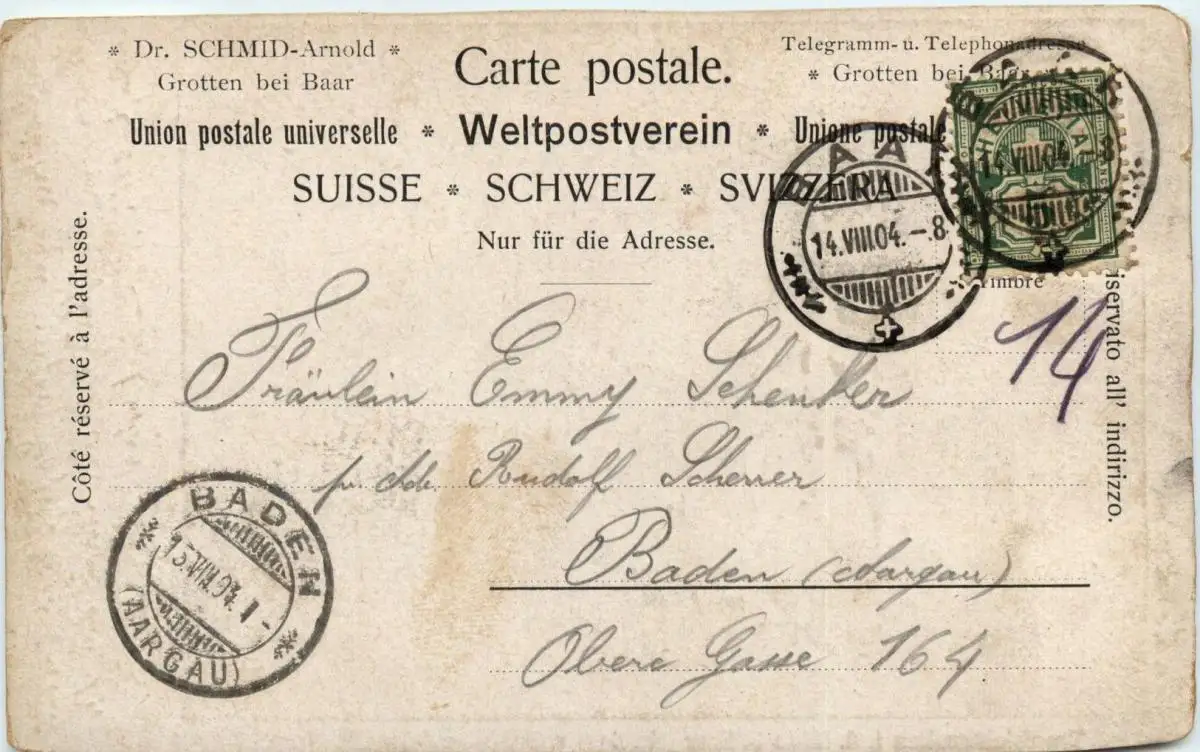 * Dr. SCHMID-Arnold *
Grotten bei Baar
Carte postale.
Telegramm- u. Telephonadresse
* Grotten bei Baar
Union postale universelle * Weltpostverein * Unione postale
SUISSE * SCHWEIZ * SVIZZERA
Nur für die Adresse.
Côté réservé à l'adresse.
BAAR
14.VIII.04.-8
BAAR
14.VIII.04.-8
Timbre
iservato all' indirizzo.
14
Fräulein Emmy Schenker
Rudolf Scherrer
Baden (Aargau)
Obere Gasse 164
BADEN
15.VIII.04. 1-
(AARGAU)